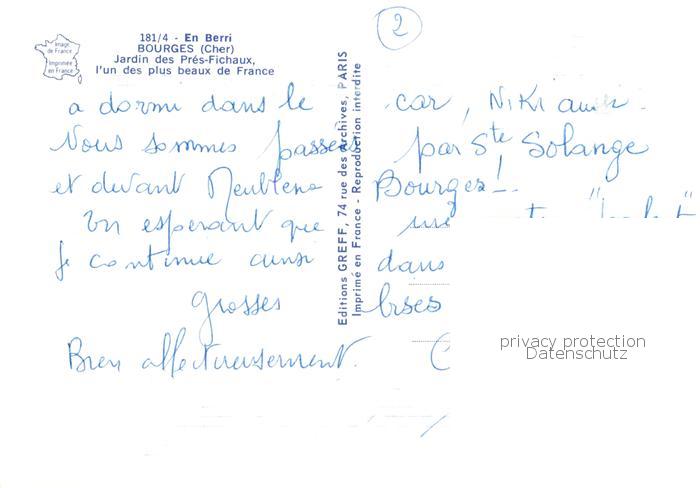 2
181/4 - En Berri
BOURGES (Cher)
Jardin des Prés-Fichaux,
l'un des plus beaux de France
Image
de France
Imprimée
en France
Editions GREFF, 74 rue des Archives, PARIS
Imprimé en France - Reproduction interdite
a dormi dans le car, NIKI aussi.
Nous sommes passées par Ste Solange
et devant Bourges!
En espérant que
je continue ainsi dans
grosses bises
Bien affectueusement.
privacy protection
Datenschutz